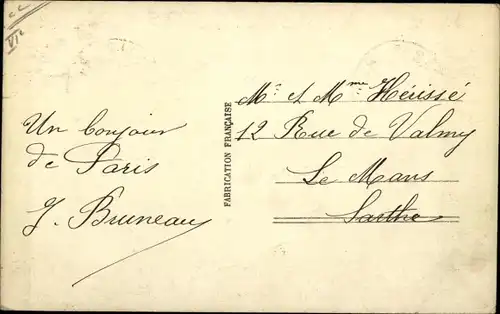 Un bonjour
de Paris
J. Bruneau
FABRICATION FRANÇAISE
Mr et Mme Hérissé
12 Rue de Valmy
Le Mans
Sarthe